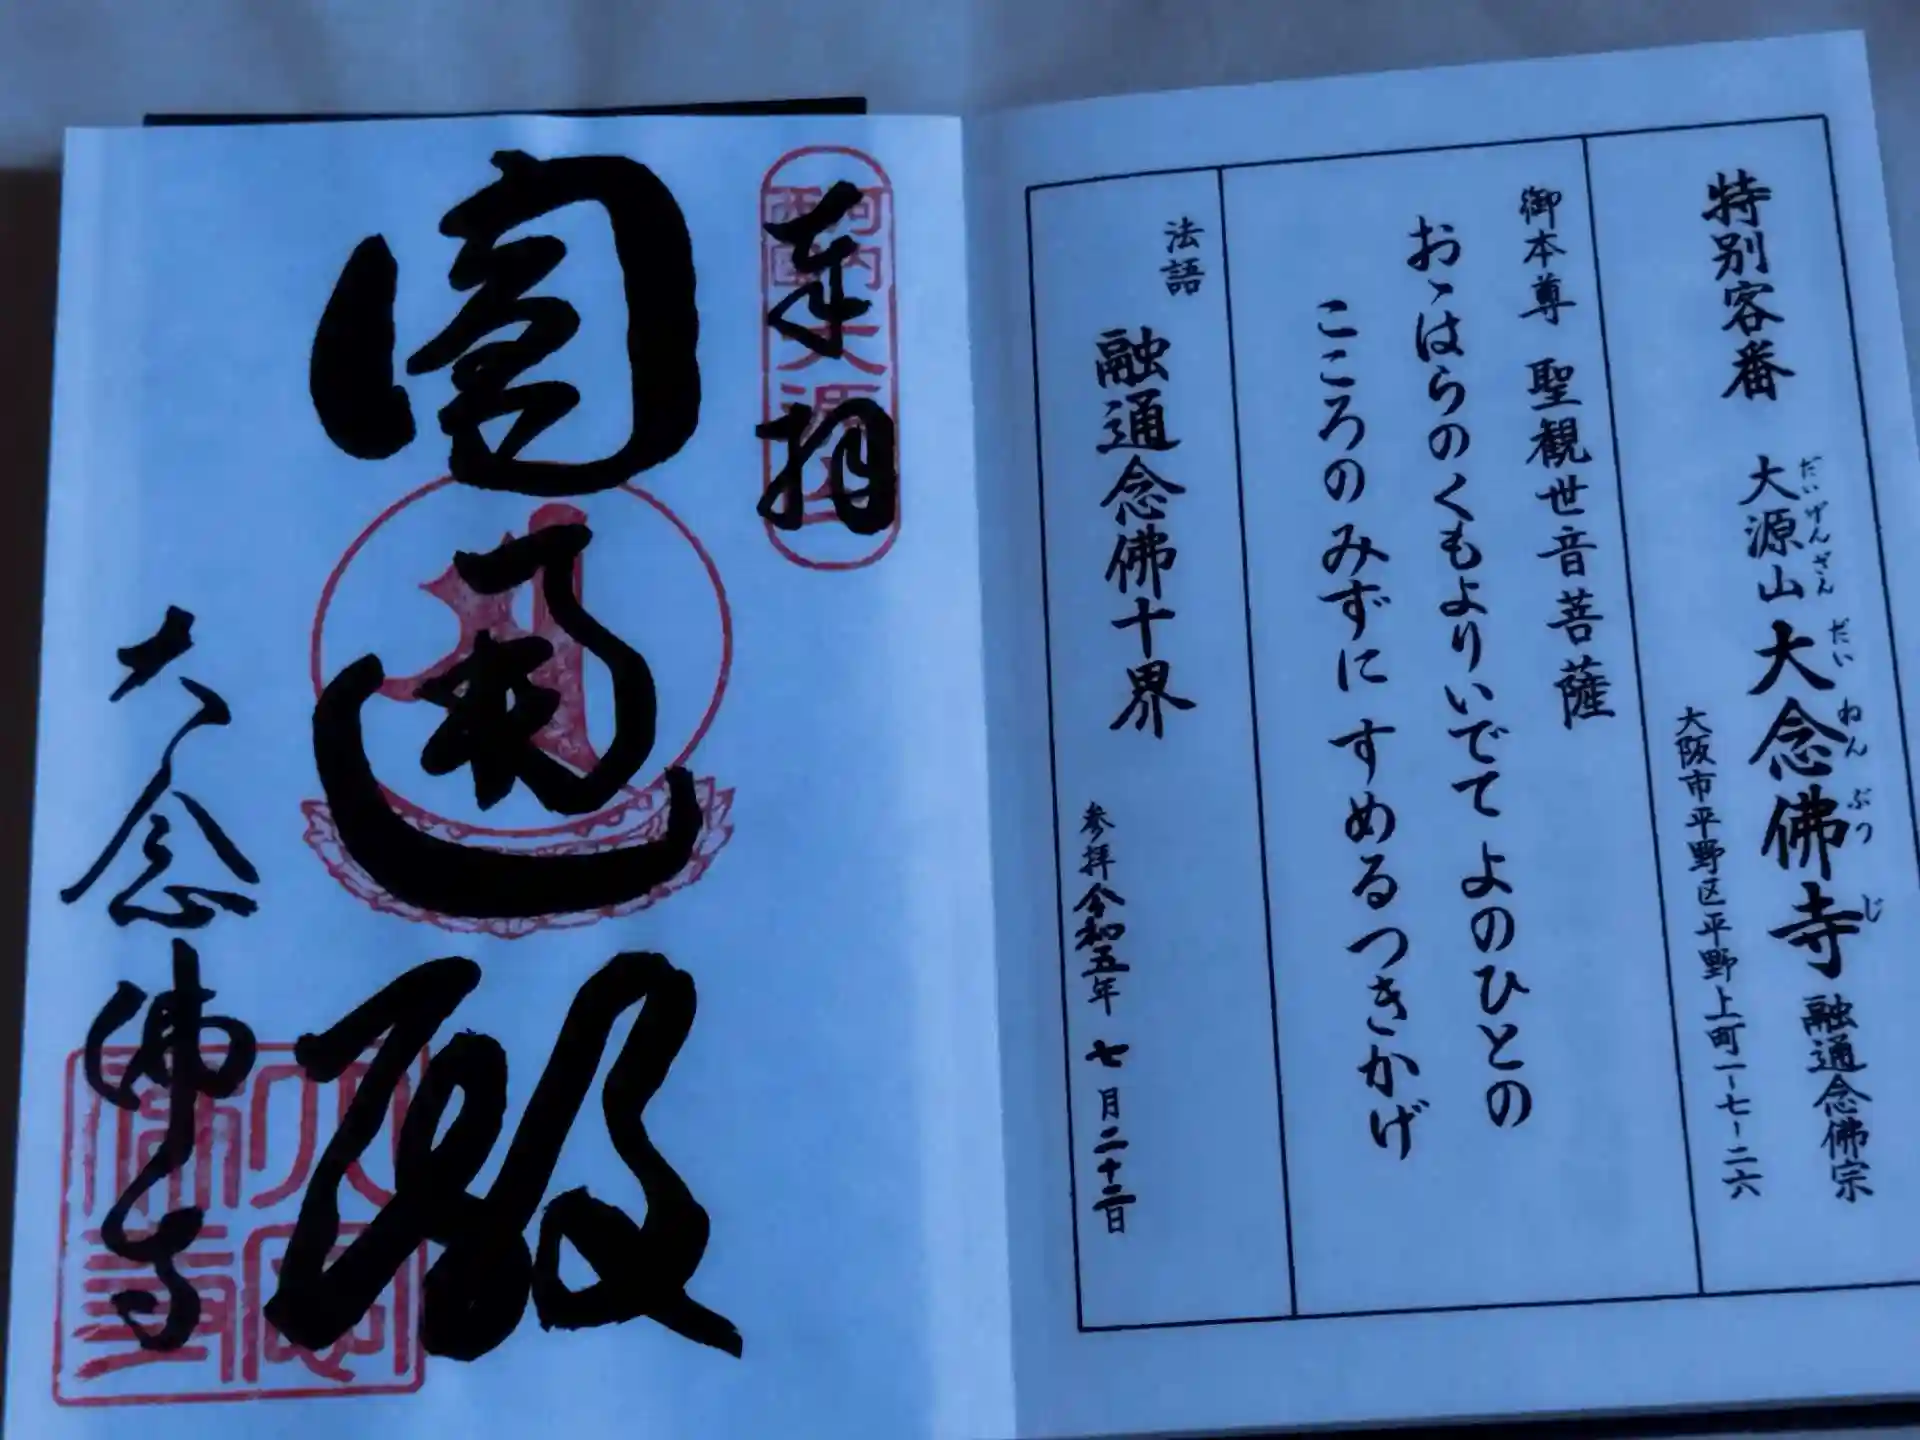 特別客番 大源山 大念佛寺 融通念佛宗
だいげんざん だいねんぶつじ
大阪市平野区平野上町一-七-二六
御本尊 聖観世音菩薩
おゝはらのくもよりいでて よのひとの
こころのみずに すめるつきかげ
法語 融通念佛十界
参拝 令和五年 七月二十二日
奉拝
圓通殿
大念佛寺